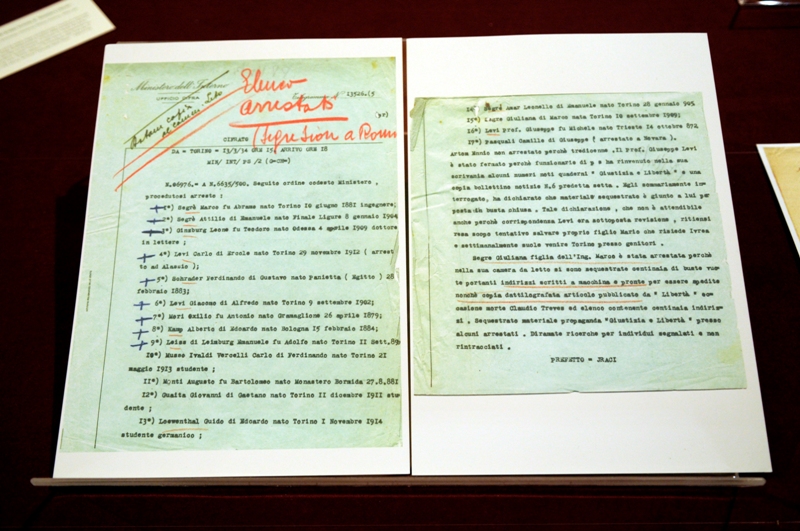 Ministero dell'Interno
UFFICIO CIFRA
13526.(5
Elenco
arrestati
(Segre Sion a Roma
CIFRATO
DA = TORINO = 13/3/34 ORE 15, ARRIVO ORE 18
MIN/ INT/ PG /2 (G=CH=)
N.06976.= A N.6635/500. Seguito ordine codesto Ministero,
procedutosi arresto :
1°) Segrè Marco fu Abramo nato Torino 10 giugno 1881 ingegnere;
2°) Segrè Attilio di Emanuele nato Finale Ligure 8 gennaio 1904
3°) Ginzburg Leone fu Teodoro nato Odessa 4 aprile 1909 dottore
in lettere ;
4°) Levi Carlo di Ercole nato Torino 29 novembre 1912 ( arrest
to ad Alassio );
5°) Schrader Ferdinando di Gustavo nato Panietta ( Egitto ) 28
febbraio 1883;
6°) Levi Giacomo di Alfredo nato Torino 9 settembre 1902;
7°) Mari Exilio fu Antonio nato Gramaglione 26 aprile 1879;
8°) Kamp Alberto di Edoardo nato Bologna 15 febbraio 1884;
9°) Leiss di Leimburg Emanuele fu Adolfo nato Torino II Sett.89
10°) Musso Ivaldi Vercelli Carlo di Ferdinando nato Torino 21
maggio 1913 studente ;
11°) Monti Augusto fu Bartolomeo nato Monastero Bormida 27.8.881
12°) Guaita Giovanni di Gaetano nato Torino II dicembre 1911 stu
dente ;
13°) Loewenthal Guido di Edoardo nato Torino I Novembre 1914
studente germanico ;
Segrè Amar Leonella di Emanuele nato Torino 28 gennaio 905
15°) Lagre Giuliana di Marco nato Torino 18 settembre 1909;
16°) Levi Prof. Giuseppe fu Michele nato Trieste 14 ottobre 872
17°) Pasquali Camillo di Giuseppe ( arrestato a Novara ).
Artea Monis non arrestato perchè tradicesne .Il Prof. Giuseppe Levi
è stato fermato perchè funzionario di p s ha rinvenuto nella sua
scrivania alcuni numeri noti quaderni " Giustizia e Libertà" e una
copia bollettino notizie N.6 predetta setta . Egli sommariamente in-
terrogato, ha dichiarato che materiale sequestrato è giunto a lui per
posta in busta chiusa . Tale dichiarazione , che non è attendibile
anche perchè corrispondenza Levi era sottoposta revisione , ritiensi
resa scopo tentativo salvare proprio figlio Mario che risiede Ivrea
e settimanalmente suole venire Torino presso genitori .
Segre Giuliana figlia dell'Ing. Marco è stata arrestata perchè
nella sua camera da letto si sono sequestrate centinaia di buste vuo-
te portanti indirizzi scritti a macchina e pronte per essere spedite
nonchè copia dattilografata articolo pubblicato da " Libertà " oc-
casione morte Claudio Treves ed elenco contenente centinaia indiriz-
zi . Sequestrato materiale propaganda "Giustizia e Libertà " presso
alcuni arrestati . Diramate ricerche per individui segnalati e non
rintracciati .
PREFETTO = IRACI